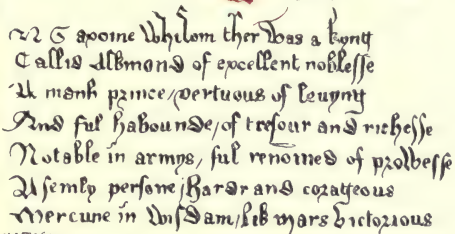 In Saxonie whilom ther was a kyng
Callid Alkmond of excellent noblesse
A manli prince / vertuous of leuyng
And ful habounde / of tresour and richesse
Notable in armys / ful renomed of prowesse
A semly persone / hardi and corageous
Mercurie in wisdam / lik mars victorious